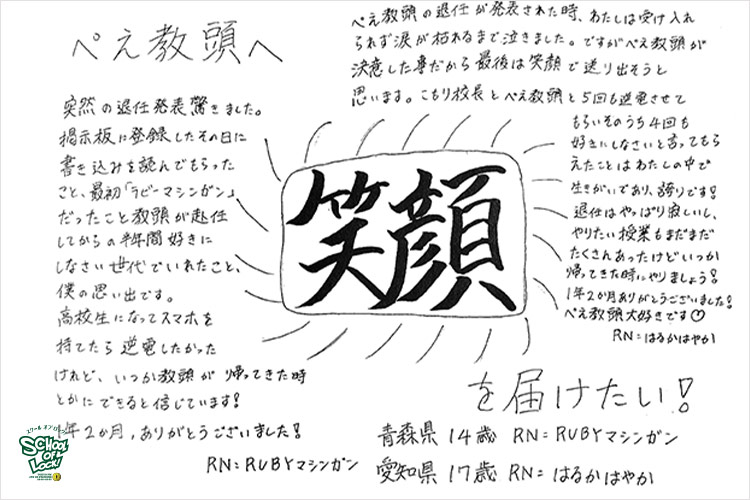 ぺえ教頭へ
突然の退任発表驚きました。
掲示板に登録したその日に
書き込みを読んでもらった
こと、最初「ラビーマシンガン」
だったこと教頭が赴任
してからの半年間好きに
しなさい世代でいれたこと、
僕の思い出です。
高校生になってスマホを
持てたら逆電したかった
けれど、いつか教頭が帰ってきた時
とかにできると信じています!
1年2か月,ありがとうございました!
RN=RUBYマシンガン
ぺえ教頭の退任が発表された時、わたしは受け入れ
られず涙が枯れるまで泣きました。ですがぺえ教頭が
決意した事だから最後は笑顔で送り出そうと
思います。こもり校長とぺえ教頭と5回も逆電させて
もらいそのうち4回も
好きにしなさいと言ってもら
えたことはわたしの中で
生きがいであり、誇りです!
退任はやっぱり寂しいし、
やりたい授業もまだまだ
たくさんあったけどいつか
帰ってきた時にやりましょう!
1年2か月ありがとうございました!
ぺえ教頭大好きです♡
RN=はるかはやか
笑顔
を届けたい!
青森県 14歳 RN=RUBYマシンガン
愛知県 17歳 RN=はるかはやか
スクール オブ ロック!
SCHOOL
OF
LOCK!